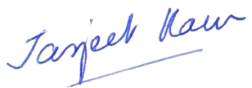 Jasjeet Kaur